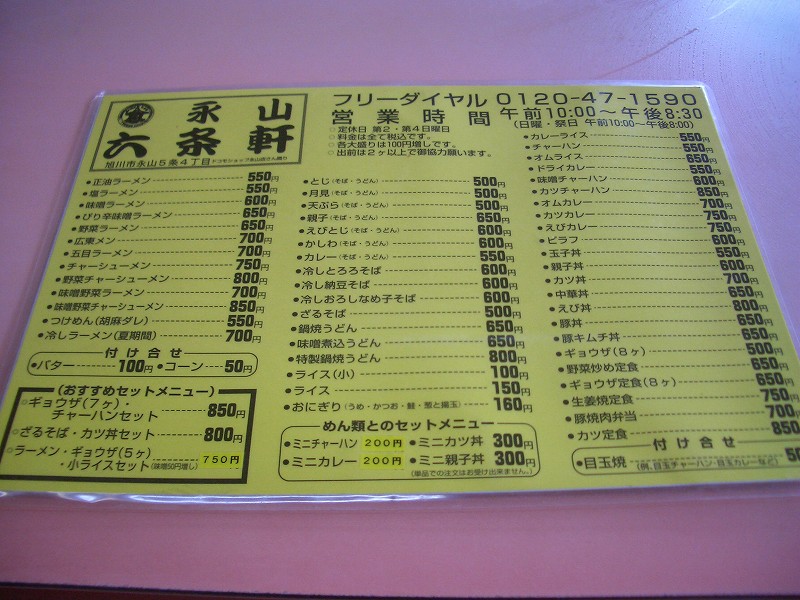 永山
六条軒
旭川市永山5条4丁目
フリーダイヤル 0120-47-1590
営業時間 午前10:00～午後8:30
(日曜・祭日 午前10:00～午後8:00)
○定休日 第2・第4日曜日
○料金は全て税込です。
○各大盛りは100円増しです。
○出前は2ヶ以上で御協力願います。
●正油ラーメン 550円
●塩ラーメン 550円
●味噌ラーメン 600円
●ぴり辛味噌ラーメン 650円
●野菜ラーメン 650円
●広東メン 700円
●五目ラーメン 700円
●チャーシューメン 750円
●野菜チャーシューメン 800円
●味噌野菜ラーメン 700円
●味噌野菜チャーシューメン 850円
●つけめん(胡麻ダレ) 550円
●冷しラーメン(夏期間) 700円
付け合せ
●バター 100円 ●コーン 50円
(おすすめセットメニュー)
○ギョウザ(7ヶ)・
チャーハンセット 850円
○ざるそば・カツ丼セット 800円
○ラーメン・ギョウザ(5ヶ)・
小ライスセット(味噌50円増し) 750円
●とじ(そば・うどん) 500円
●月見(そば・うどん) 500円
●天ぷら(そば・うどん) 500円
●親子(そば・うどん) 650円
●えびとじ(そば・うどん) 600円
●かしわ(そば・うどん) 600円
●カレー(そば・うどん) 600円
●冷しとろろそば 600円
●冷し納豆そば 600円
●冷しおろしなめ子そば 600円
●ざるそば 500円
●鍋焼うどん 650円
●味噌煮込うどん 650円
●特製鍋焼うどん 800円
●ライス(小) 100円
●ライス 150円
●おにぎり(うめ・かつお・鮭・葱と揚玉) 160円
めん類とのセットメニュー
●ミニチャーハン 200円 ●ミニカツ丼 300円
●ミニカレー 200円 ●ミニ親子丼 300円
(単品での注文はお受け出来ません。)
●カレーライス 550円
●チャーハン 550円
●オムライス 650円
●ドライカレー 550円
●味噌チャーハン 600円
●カツチャーハン 850円
●オムカレー 700円
●カツカレー 750円
●えびカレー 750円
●ピラフ 600円
●玉子丼 550円
●親子丼 600円
●カツ丼 700円
●中華丼 650円
●えび丼 800円
●豚丼 650円
●豚キムチ丼 650円
●ギョウザ(8ヶ) 500円
●野菜炒め定食 650円
●ギョウザ定食(8ヶ) 650円
●生姜焼定食 750円
●豚焼肉弁当 700円
●カツ定食 850
付け合せ
●目玉焼(例、目玉チャーハン・目玉カレーなど)